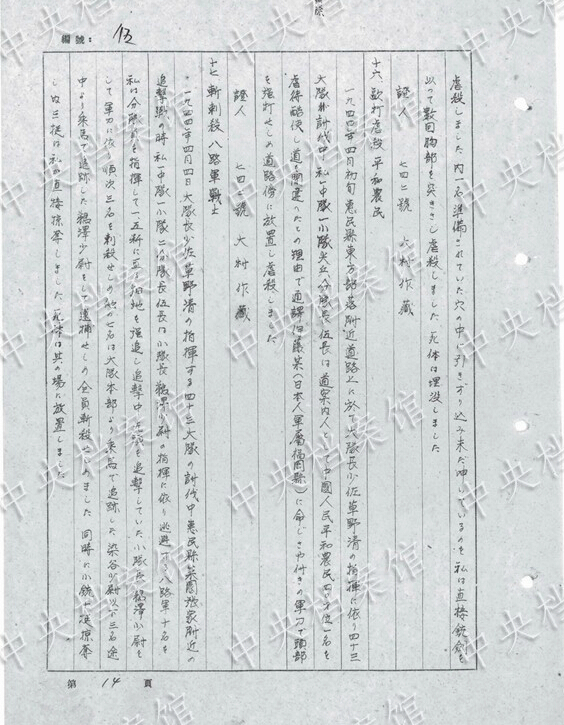 編號： 伍
虐殺しました 内一名準備されていた穴の中に引きずり込み未だ呻しているのを私は直接銃剣を
以って数回胸部を突きさし虐殺しました 死体は埋没しました
證人 七四二號 大村作藏
十六、殴打虐殺 平和農民
一九四四年四月初旬恵民県東方部落附近道路上に於て大隊長少佐草野清の指揮に依り四十三
大隊 討伐中 私 中隊一小隊 分隊長伍長は道案内人として中國人民平和農民 一名を
虐待酷使し道を間違ったとの理由で通譯伊藤某（日本人軍属福岡縣）に命じさや付きの軍刀で頭部
を殴打せしめ道路傍に放置し虐殺しました
證人 七四二號 大村作藏
十七、斬刺殺 八路軍戰士
一九四四年四月四日大隊長少佐草野清の指揮する四十三大隊の討伐中恵民縣 家附近の
追撃戰の時私 中隊一小隊二分隊長伍長は小隊長 澤少尉の指揮に依り逃避する八路軍十名を
私は分隊 を指揮して 追撃中 を追撃していた小隊長 澤少尉を
して軍刀に依り順次三名を刺殺せしめ他の七名は大隊本部より乗馬で追跡した染谷 尉以下三名 途
中より乗馬で追跡した 澤少尉をして逮捕せしめ全員斬殺せしめました 同時に小銃七挺掠奪
し内三挺は私が直接掠奪しました 死体は其の場に放置しました
第 14 頁
中央档案馆